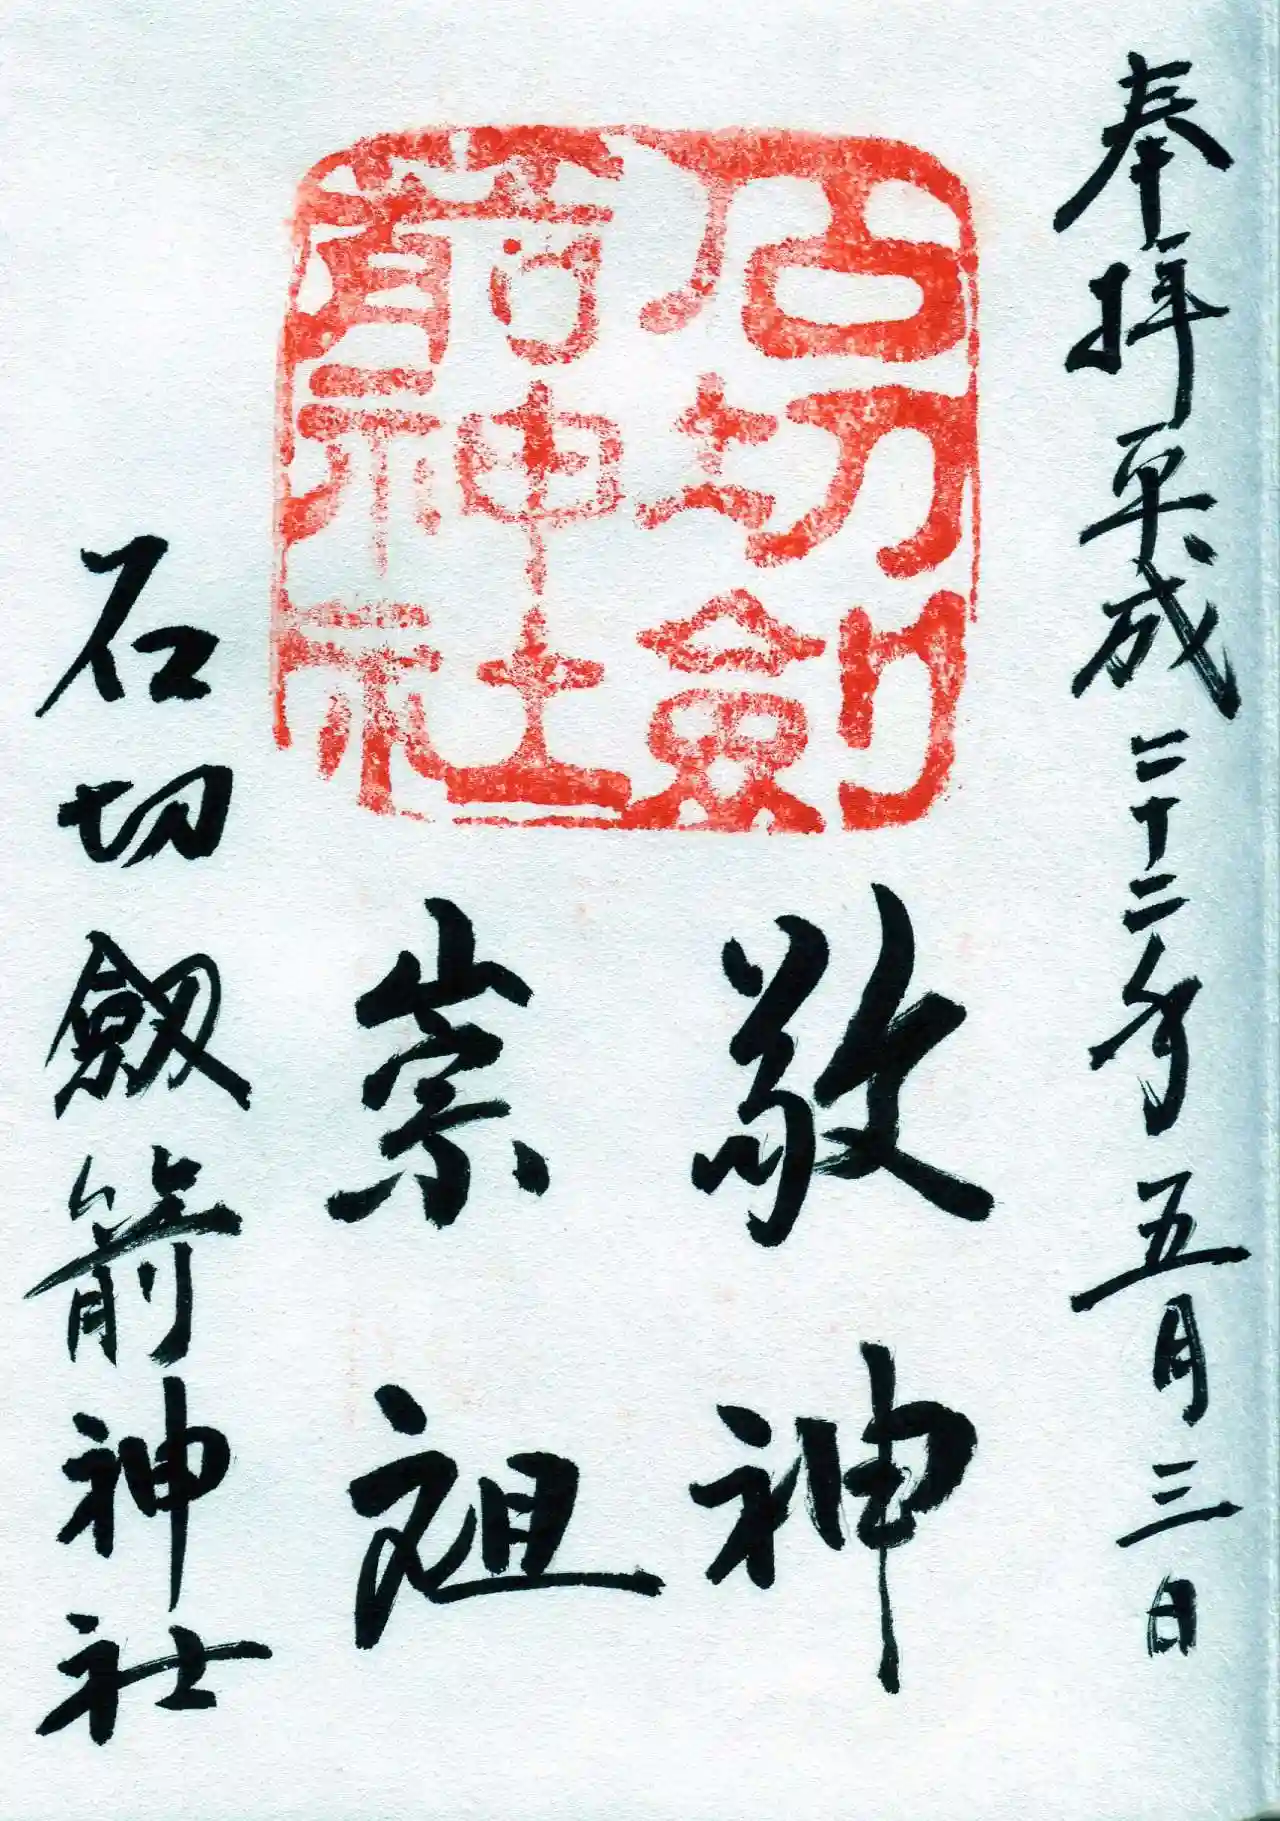 奉拝 平成二十二年五月三日
石切劍
箭神社
敬神
崇祖
石切劔箭神社